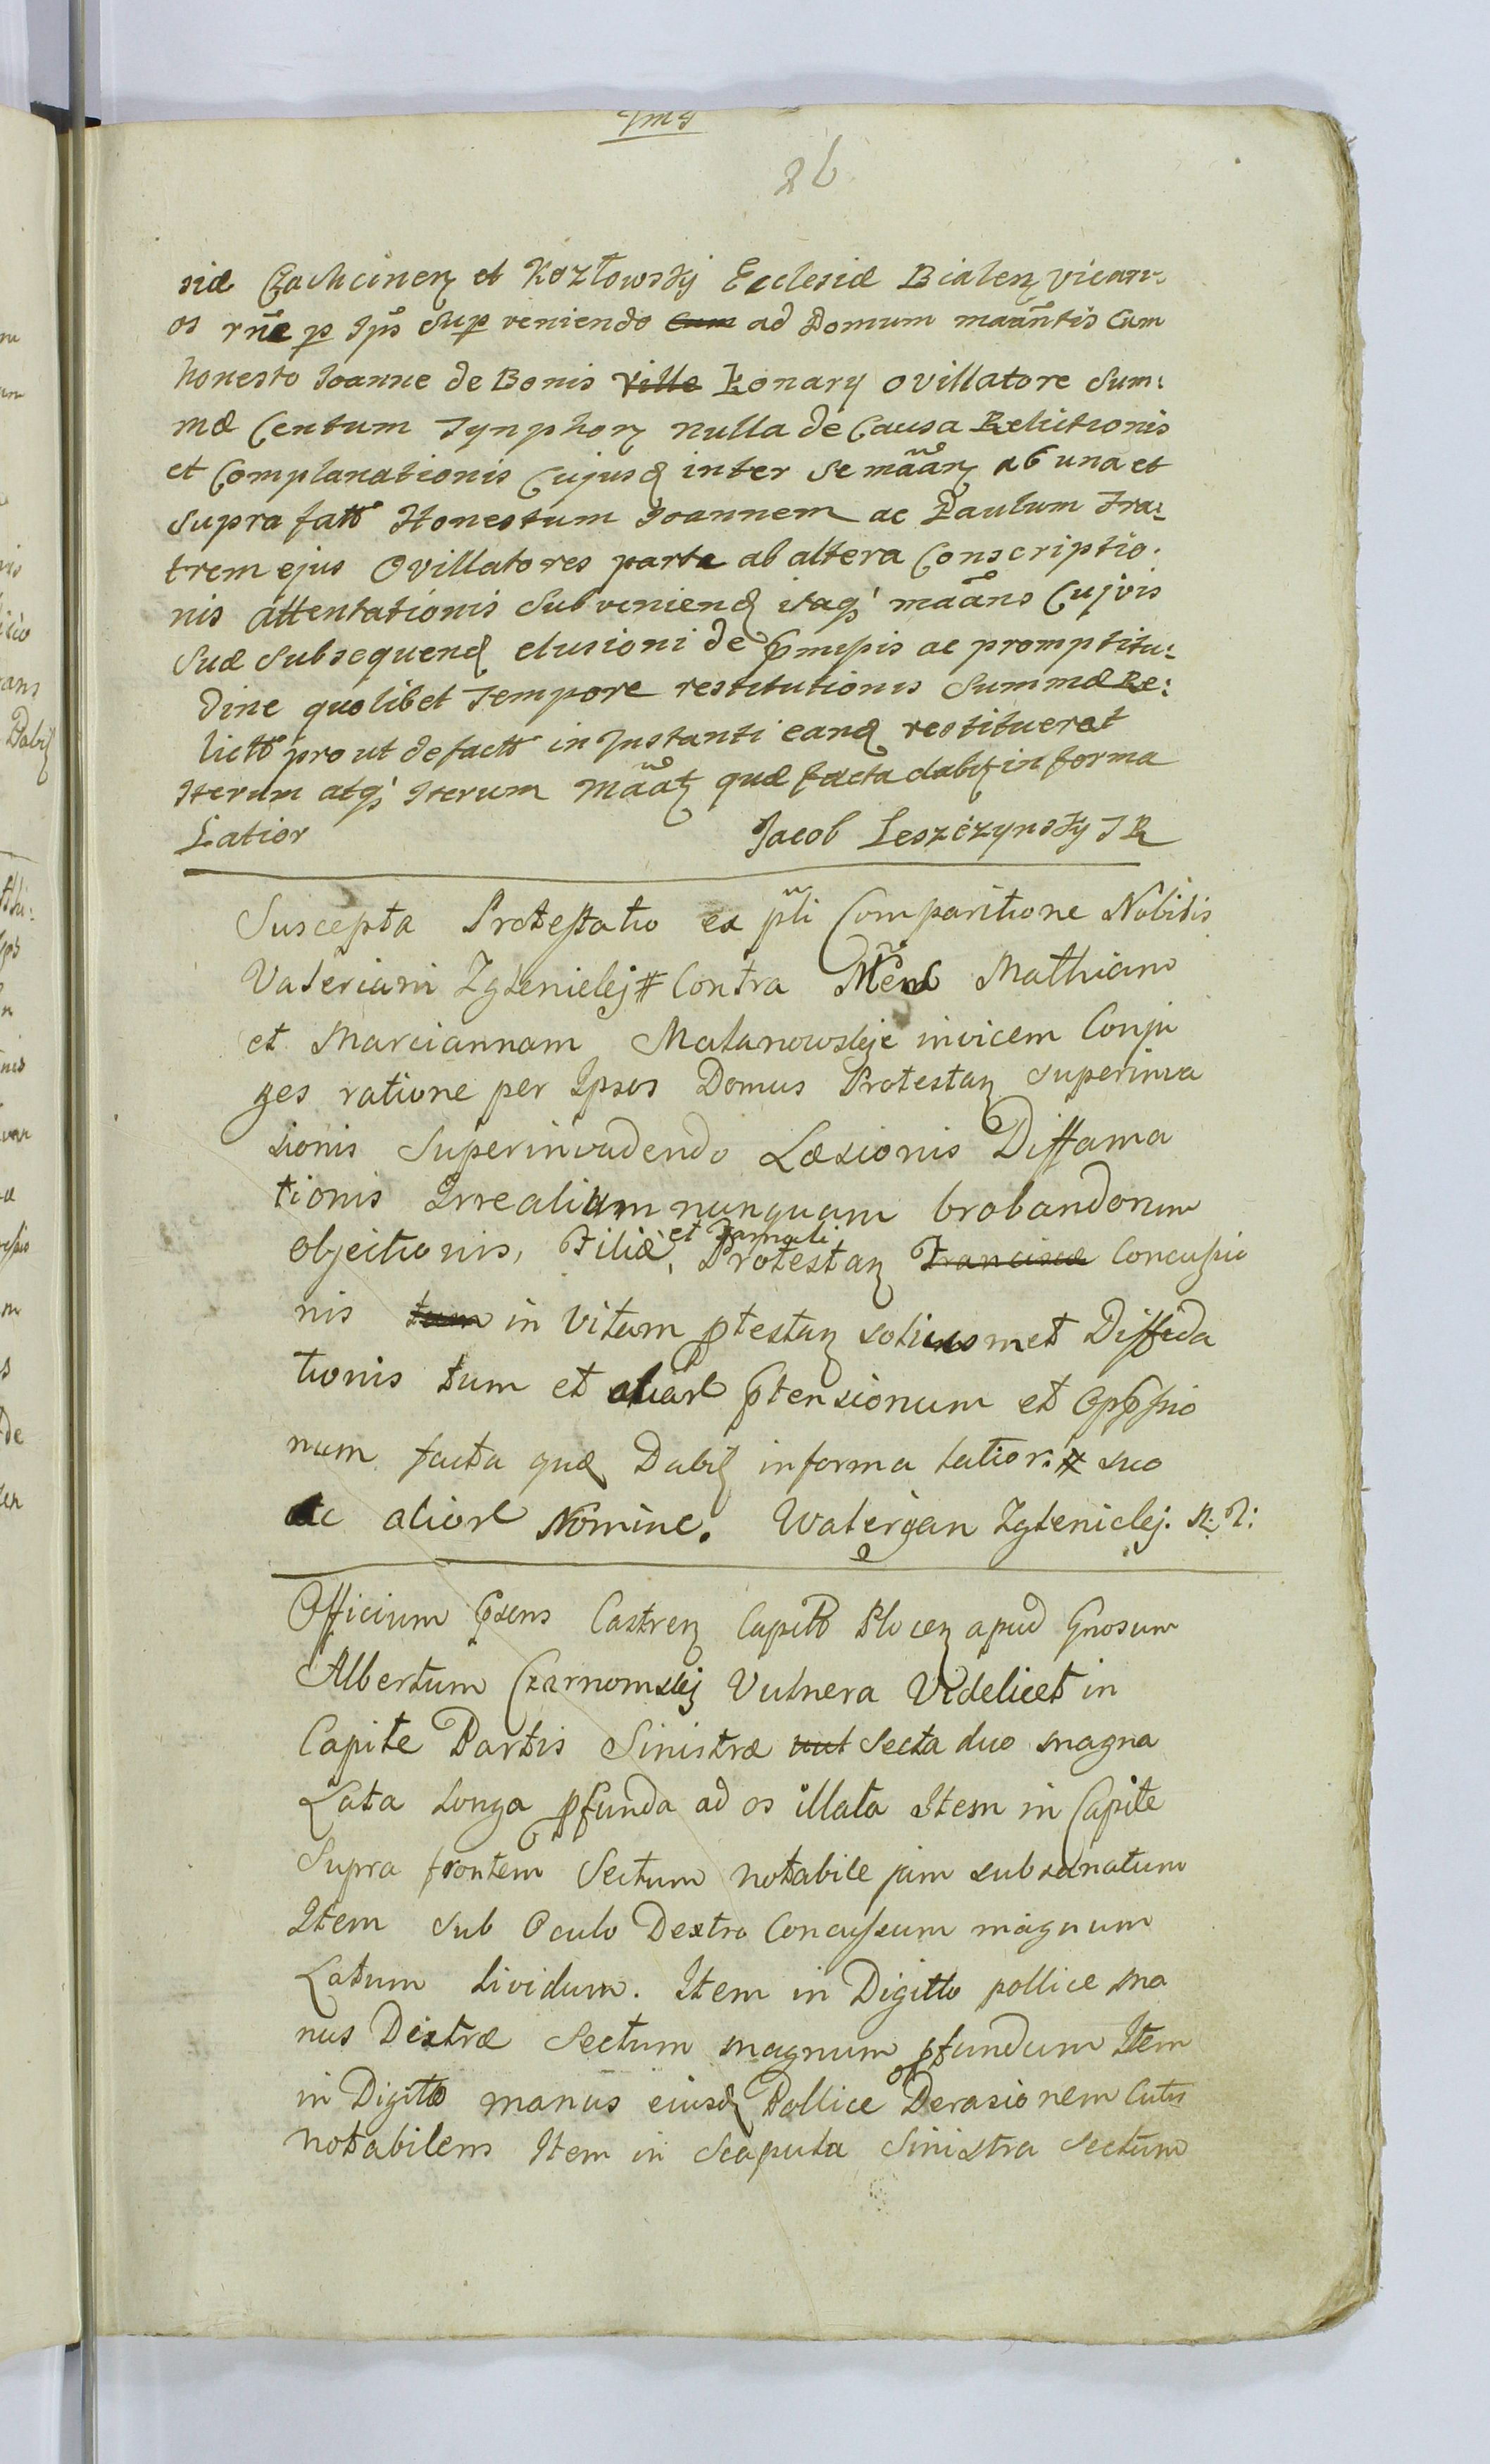 26
siæ Czachcinen et Kozłowskÿ Ecclesiæ Bialen vicari-
os rne p Ips Sup veniendo Cum ad Domum maantis Cum
honesto Joanne de Bonis Ville Konary ovillatore Sum:
mæ Centum Tynphor nulla de Causa Relictionis
et Complanationis Cujusq inter se maan ab una et
supra fatt Honestum Joannem ac Paulum Fra:
trem ejus Ovillatores parte ab altera Conscriptio.
nis attentationis Subveniend itaq maans Cujvis
suæ subsequend elusioni de pmissis ac promptitu:
dine quolibet Tempore restitutionis Summæ Re:
lictt prout defactt in Instanti eand restituerat
Iterum atq Iterum Maat quæ facta dabit in forma
Latior Jacob Leszczynsky
Suscepta Protestatio ex pli Comparitione Nobilis
Valeriani Zglenickj # Contra Mend Mathiam
et Mariannam Malanowskje invicem Conju
ges ratione per Ipsos Domus Protestan Superinva
sionis Superinvadendo Læsionis Diffama
tionis Irrealium nunquam brobandorum
objectionis, Filiæ, et Famuli Protestan Franciscæ Concussio
nis tum in Vitam ptestan solius met Diffida
tionis tum et aliar ptensionum et Oppssio
num facta quæ Dabit in forma latior: # suo
ac alior Nomine. Waleryan Zglenickj.
Officium psens Castren Capitt Plocen apud Gnosum
Albertum Czarnomskj Vulnera Videlicet in
Capite Partis Sinistræ vul Secta duo magna
Lata Longa pfunda ad os illata Item in Capite
Supra frontem Sectum notabile jam subsanatum
Item sub Oculo Dextro Concussum magnum
Latum lividum. Item in Digitto pollice ma
nus Dextræ Sectum magnum pfundum Item
in Digitto manus eiusd Pollice Derasionem Cutis
notabilem Item in Scapula Sinistra sectum